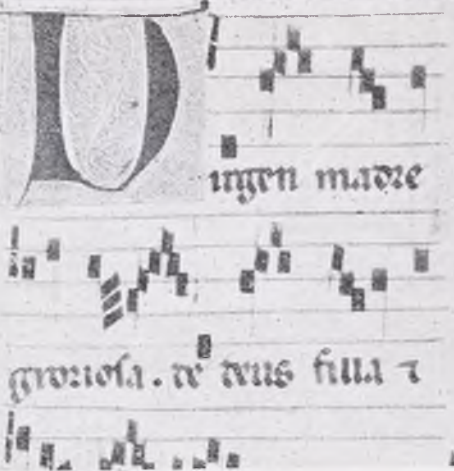 Virgen madre
groriosa. de deus filla ⁊